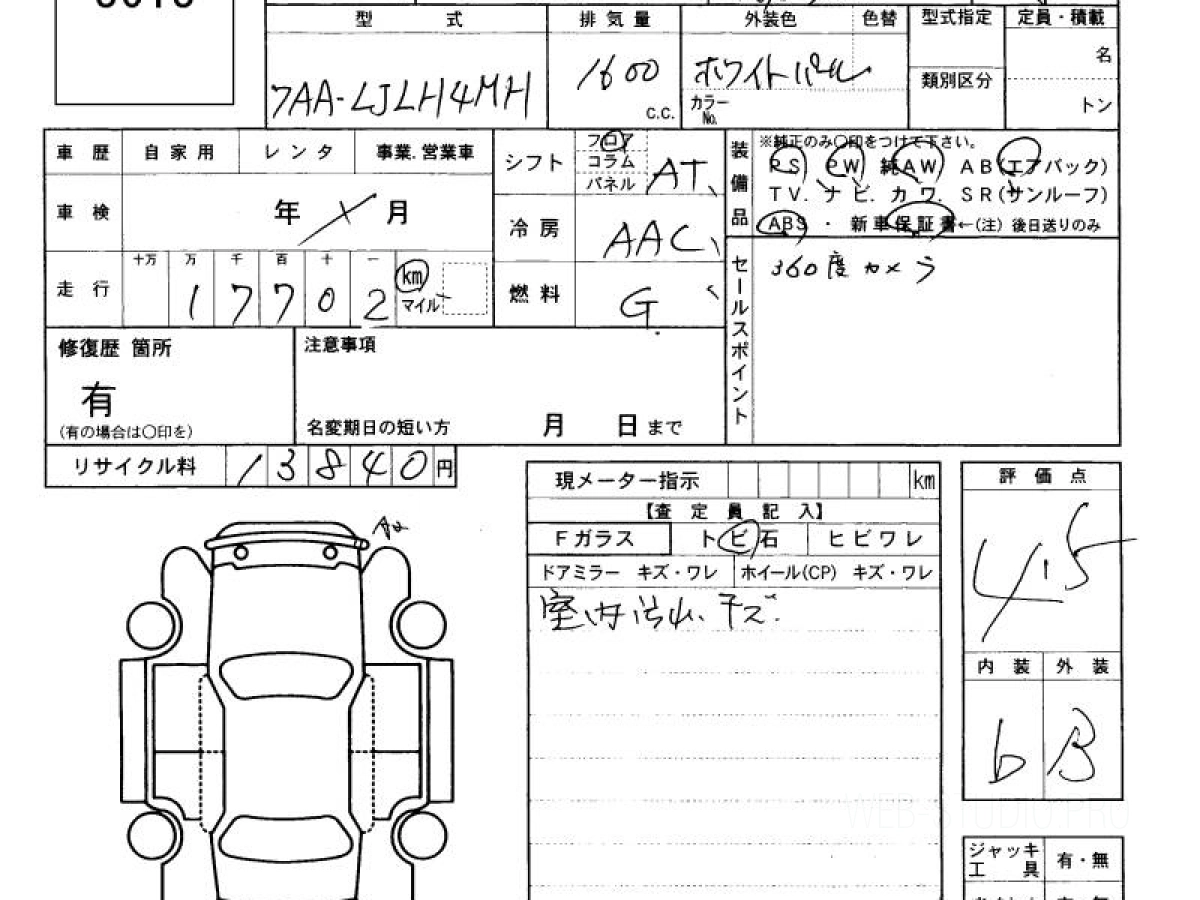 型 式 排気量 外装色 色替 型式指定 定員・積載
7AA-LJLH4MH 1600 C.C. ホワイトパール 名
カラーNo. 類別区分 トン
車歴 自家用 レンタ 事業.営業車 シフト フロア コラム パネル AT 装備品 ※純正のみ〇印をつけて下さい。
PS PW 純AW AB(エアバック)
車検 年 月 冷房 AAC TV. ナビ. カワ. SR(サンルーフ)
ABS ・ 新車保証書←(注) 後日送りのみ
走行 十万 万 千 百 十 一 km マイル 燃料 G. セールスポイント 360度カメラ
1 7 7 0 2
修復歴 箇所 注意事項
有
(有の場合は〇印を) 名変期日の短い方 月 日まで
リサイクル料 13840円
現メーター指示 km 評価点
【査定員記入】 4.5
Fガラス トビ石 ヒビワレ
ドアミラー キズ・ワレ ホイール(CP) キズ・ワレ
室内汚れ、キズ.
内装 外装
b B
WEB-STUDIO.PRO
ジャッキ 工具 有・無